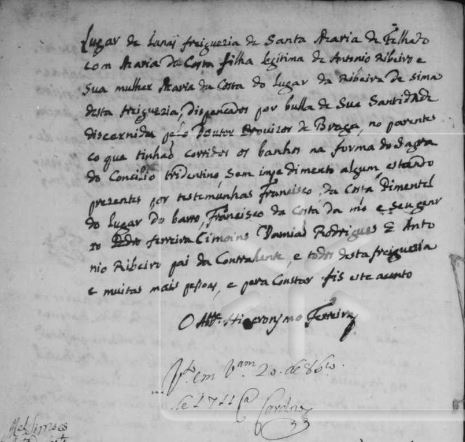 Lugar de Lanai freigueria de Santa Maria de Telhado
com Maria da Costa filha legitima de Antonio Ribeiro e
sua mulher Maria da Costa do lugar da Ribeira de sima
desta freigueria, dispençados por bulla de Sua Santidade
discernida pelo Doutor Provizor de Braga, no parentes
co que tinhaõ corridos os banhos na forma do Sagra
do Concilio tridentino sem impedimento algum estando
prezentes por testemunhas Francisco da Costa Pimentel
do lugar do barro, Francisco da Costa da mó e seu gen
ro Pedro ferreira Damias Rodrigues E Anto
nio Ribeiro pai da Contrahente, e todos desta freigueria
e muitas mais pessoas, e pera Constar fis este acento
O Abb.e Hieronymo Ferreira
V.to em 20. de
de 1711